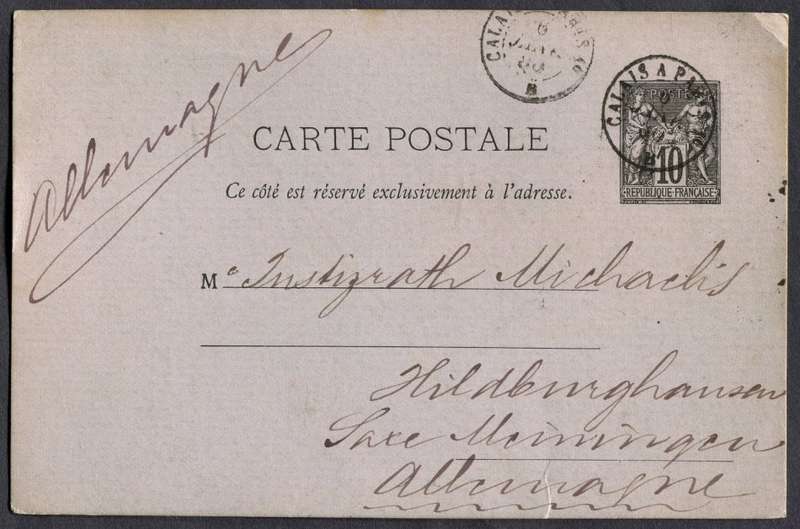 Allemagne
CALAIS A PARIS
B
CALAIS A PARIS
B
POSTES
10
REPUBLIQUE FRANÇAISE
CARTE POSTALE
Ce côté est réservé exclusivement à l'adresse.
M Justizrath Michaelis
Hildburghausen
Saxe Meiningen
Allemagne